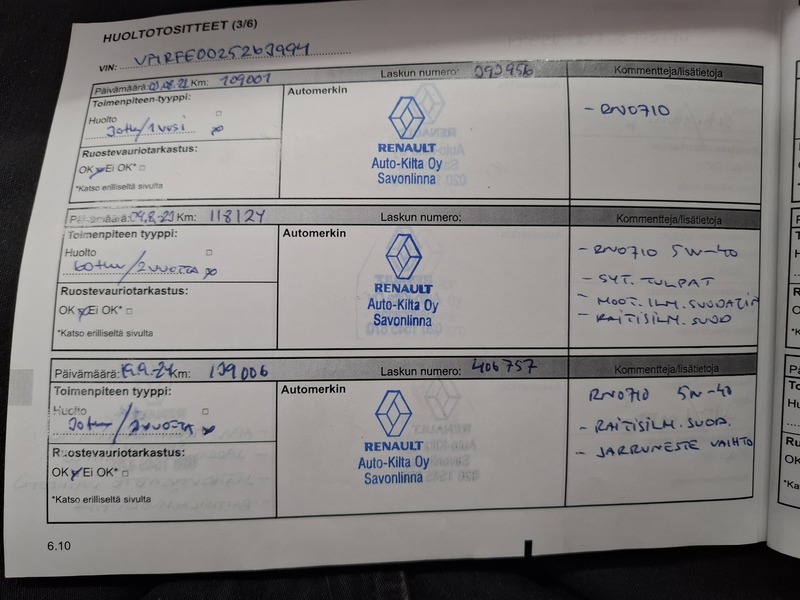 HUOLTOTOSITTEET (3/6)
VIN:
Päivämäärä: Km: 109001 Laskun numero: 393956 Kommentteja/lisätietoja
Toimenpiteen tyyppi: Automerkin
Huolto
30tkm/1vuosi
Ruostevauriotarkastus:
OK Ei OK*
*Katso erilliseltä sivulta
RENAULT
Auto-Kilta Oy
Savonlinna
- RN0710
Päivämäärä: 09.8.23 Km: 118124 Laskun numero: Kommentteja/lisätietoja
Toimenpiteen tyyppi: Automerkin
Huolto
60tkm/2vuotta
Ruostevauriotarkastus:
OK Ei OK*
*Katso erilliseltä sivulta
RENAULT
Auto-Kilta Oy
Savonlinna
- RN0710 5W-40
- SYT. TULPAT
- MOOT. ILM. SUODATIN
- RAITISILM. SUOD
Päivämäärä: Km: 139006 Laskun numero: 406757 Kommentteja/lisätietoja
Toimenpiteen tyyppi: Automerkin
Huolto
30tkm/3vuotta
Ruostevauriotarkastus:
OK Ei OK*
*Katso erilliseltä sivulta
RENAULT
Auto-Kilta Oy
Savonlinna
RN0710 5W-40
- RAITISILM. SUOD.
- JARRUNESTE VAIHTO
6.10